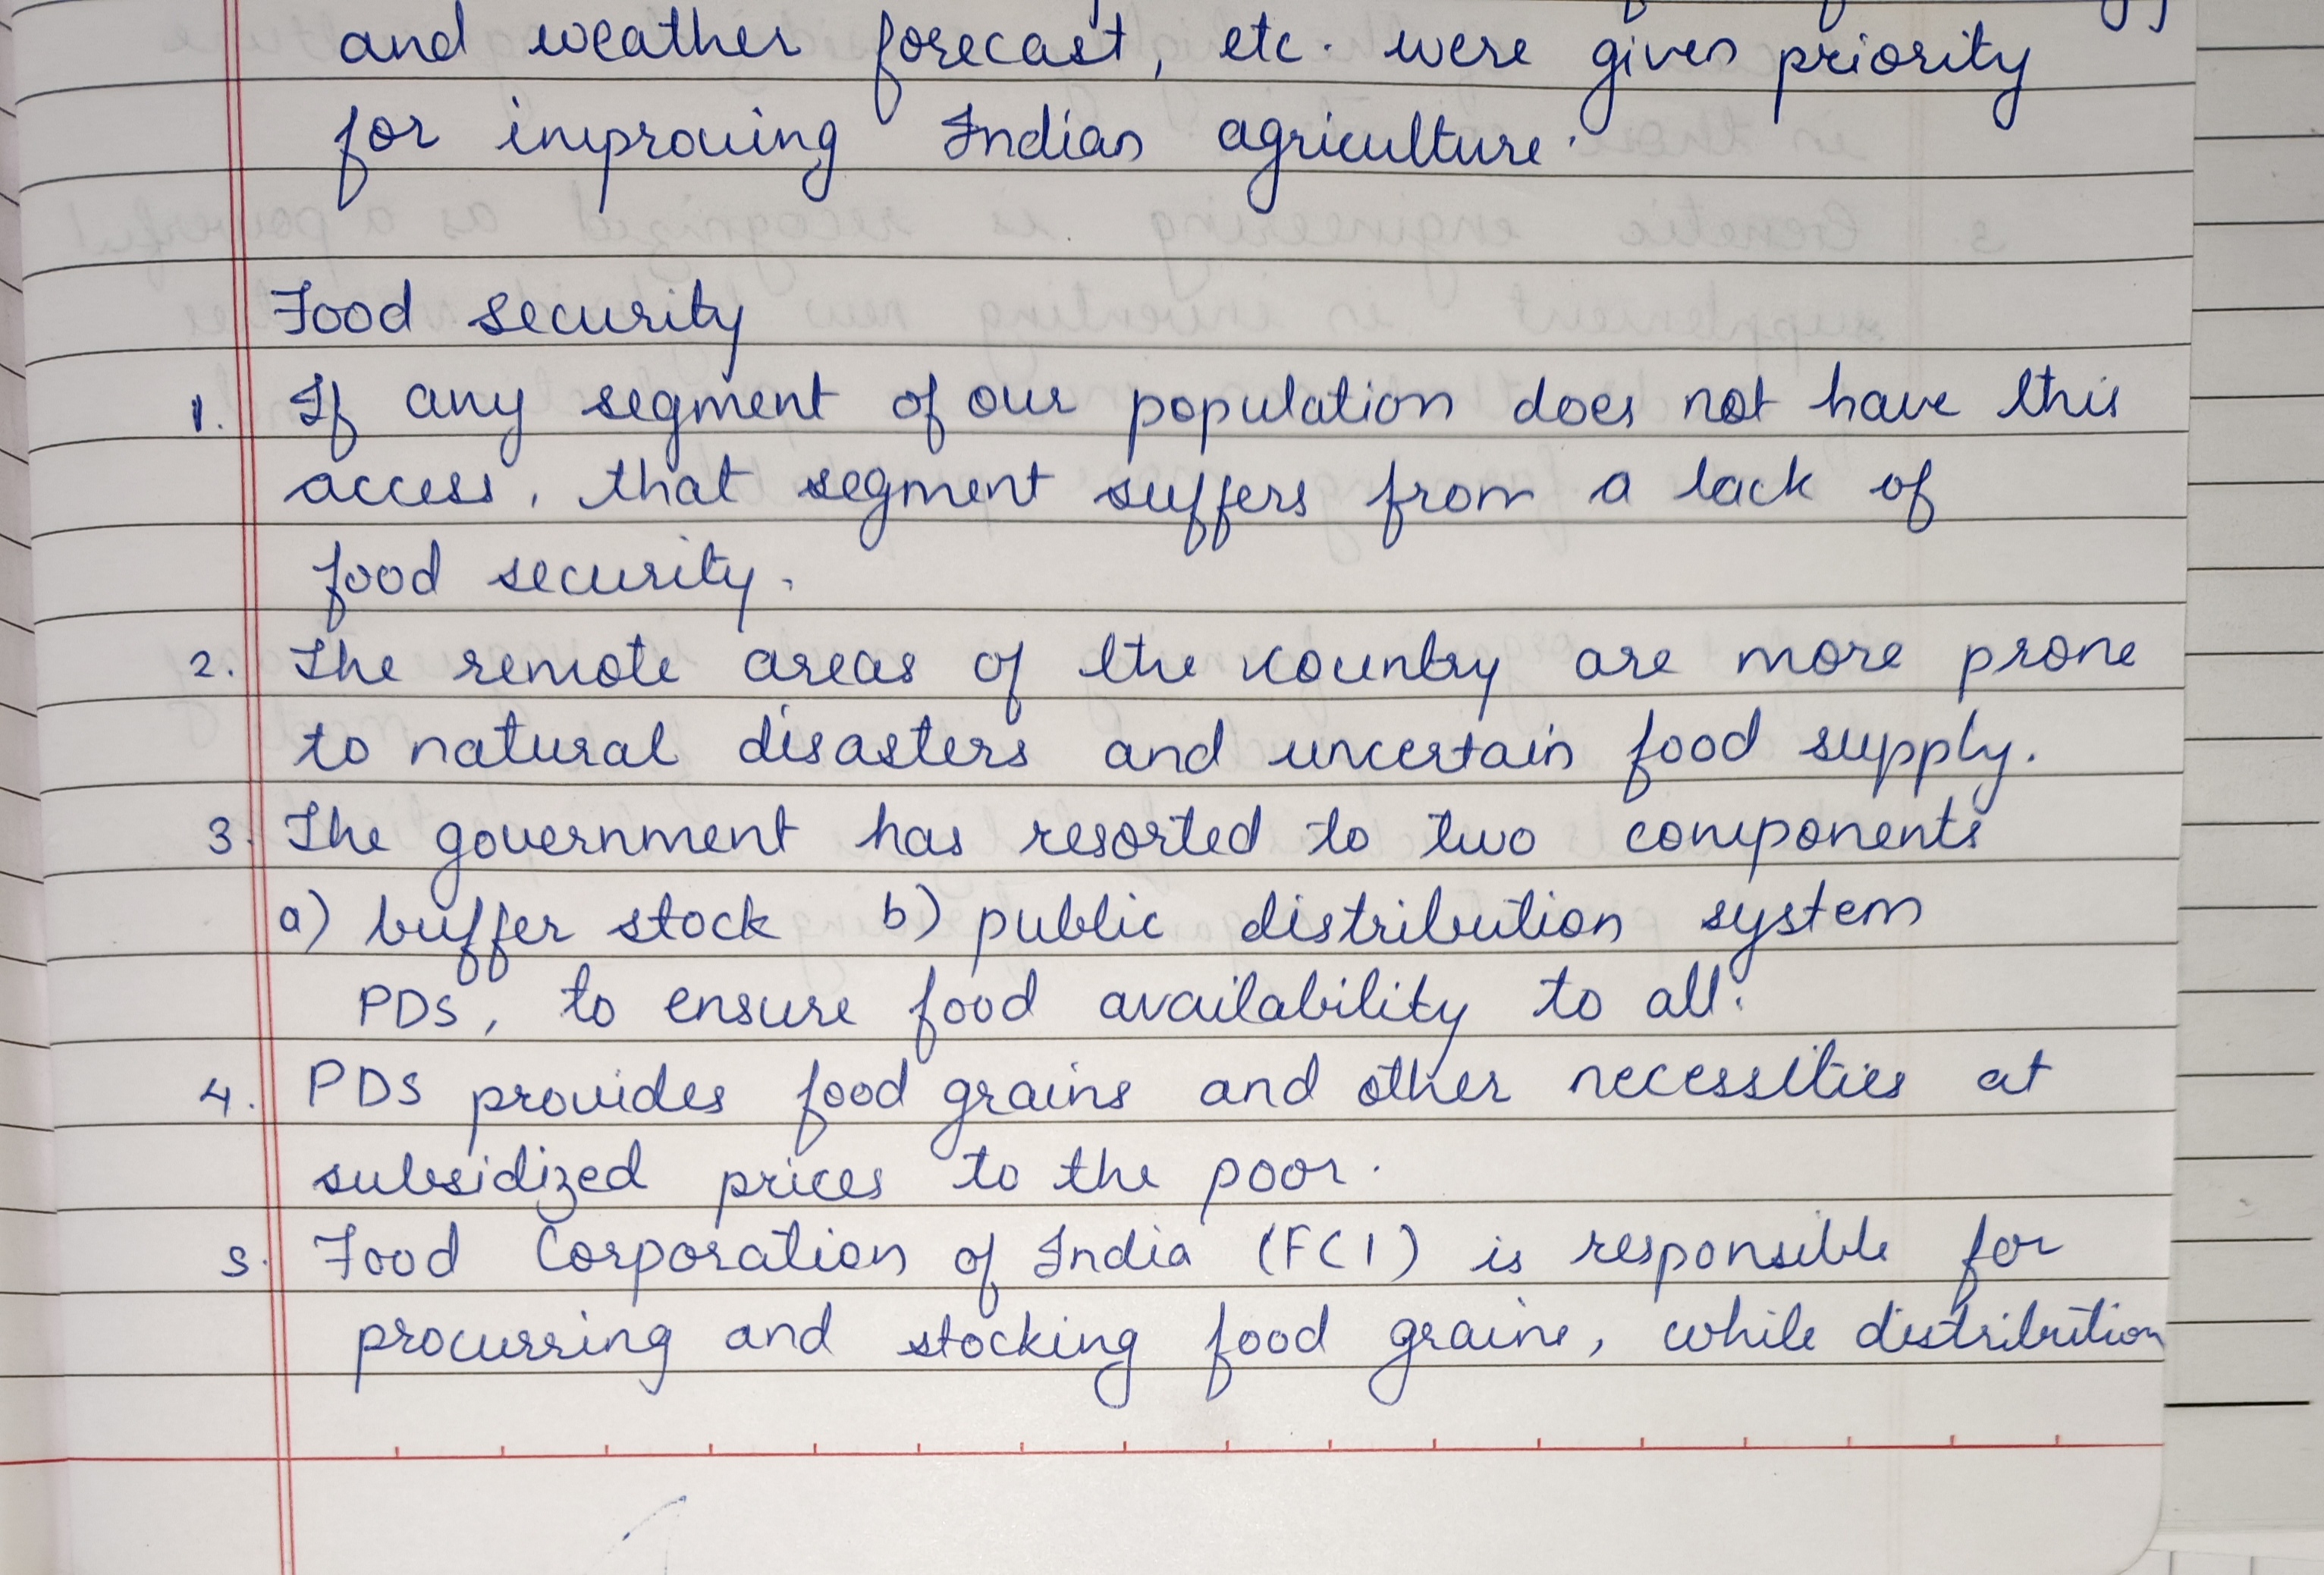 and weather forecast, etc. were given priority
for improving Indian agriculture.
Food security
1. If any segment of our population does not have this
access, that segment suffers from a lack of
food security.
2. The remote areas of the country are more prone
to natural disasters and uncertain food supply.
3. The government has resorted to two components
a) buffer stock b) public distribution system
PDS, to ensure food availability to all.
4. PDS provides food grains and other necessities at
subsidized prices to the poor.
5. Food Corporation of India (FCI) is responsible for
procurring and stocking food grains, while distribution